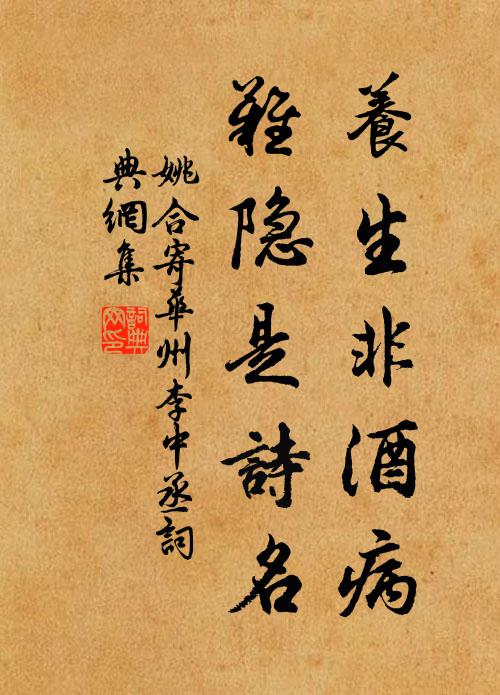 養生非酒病
難隐是詩名
姚合寄華州李中丞詞
典網集
詞典
网印